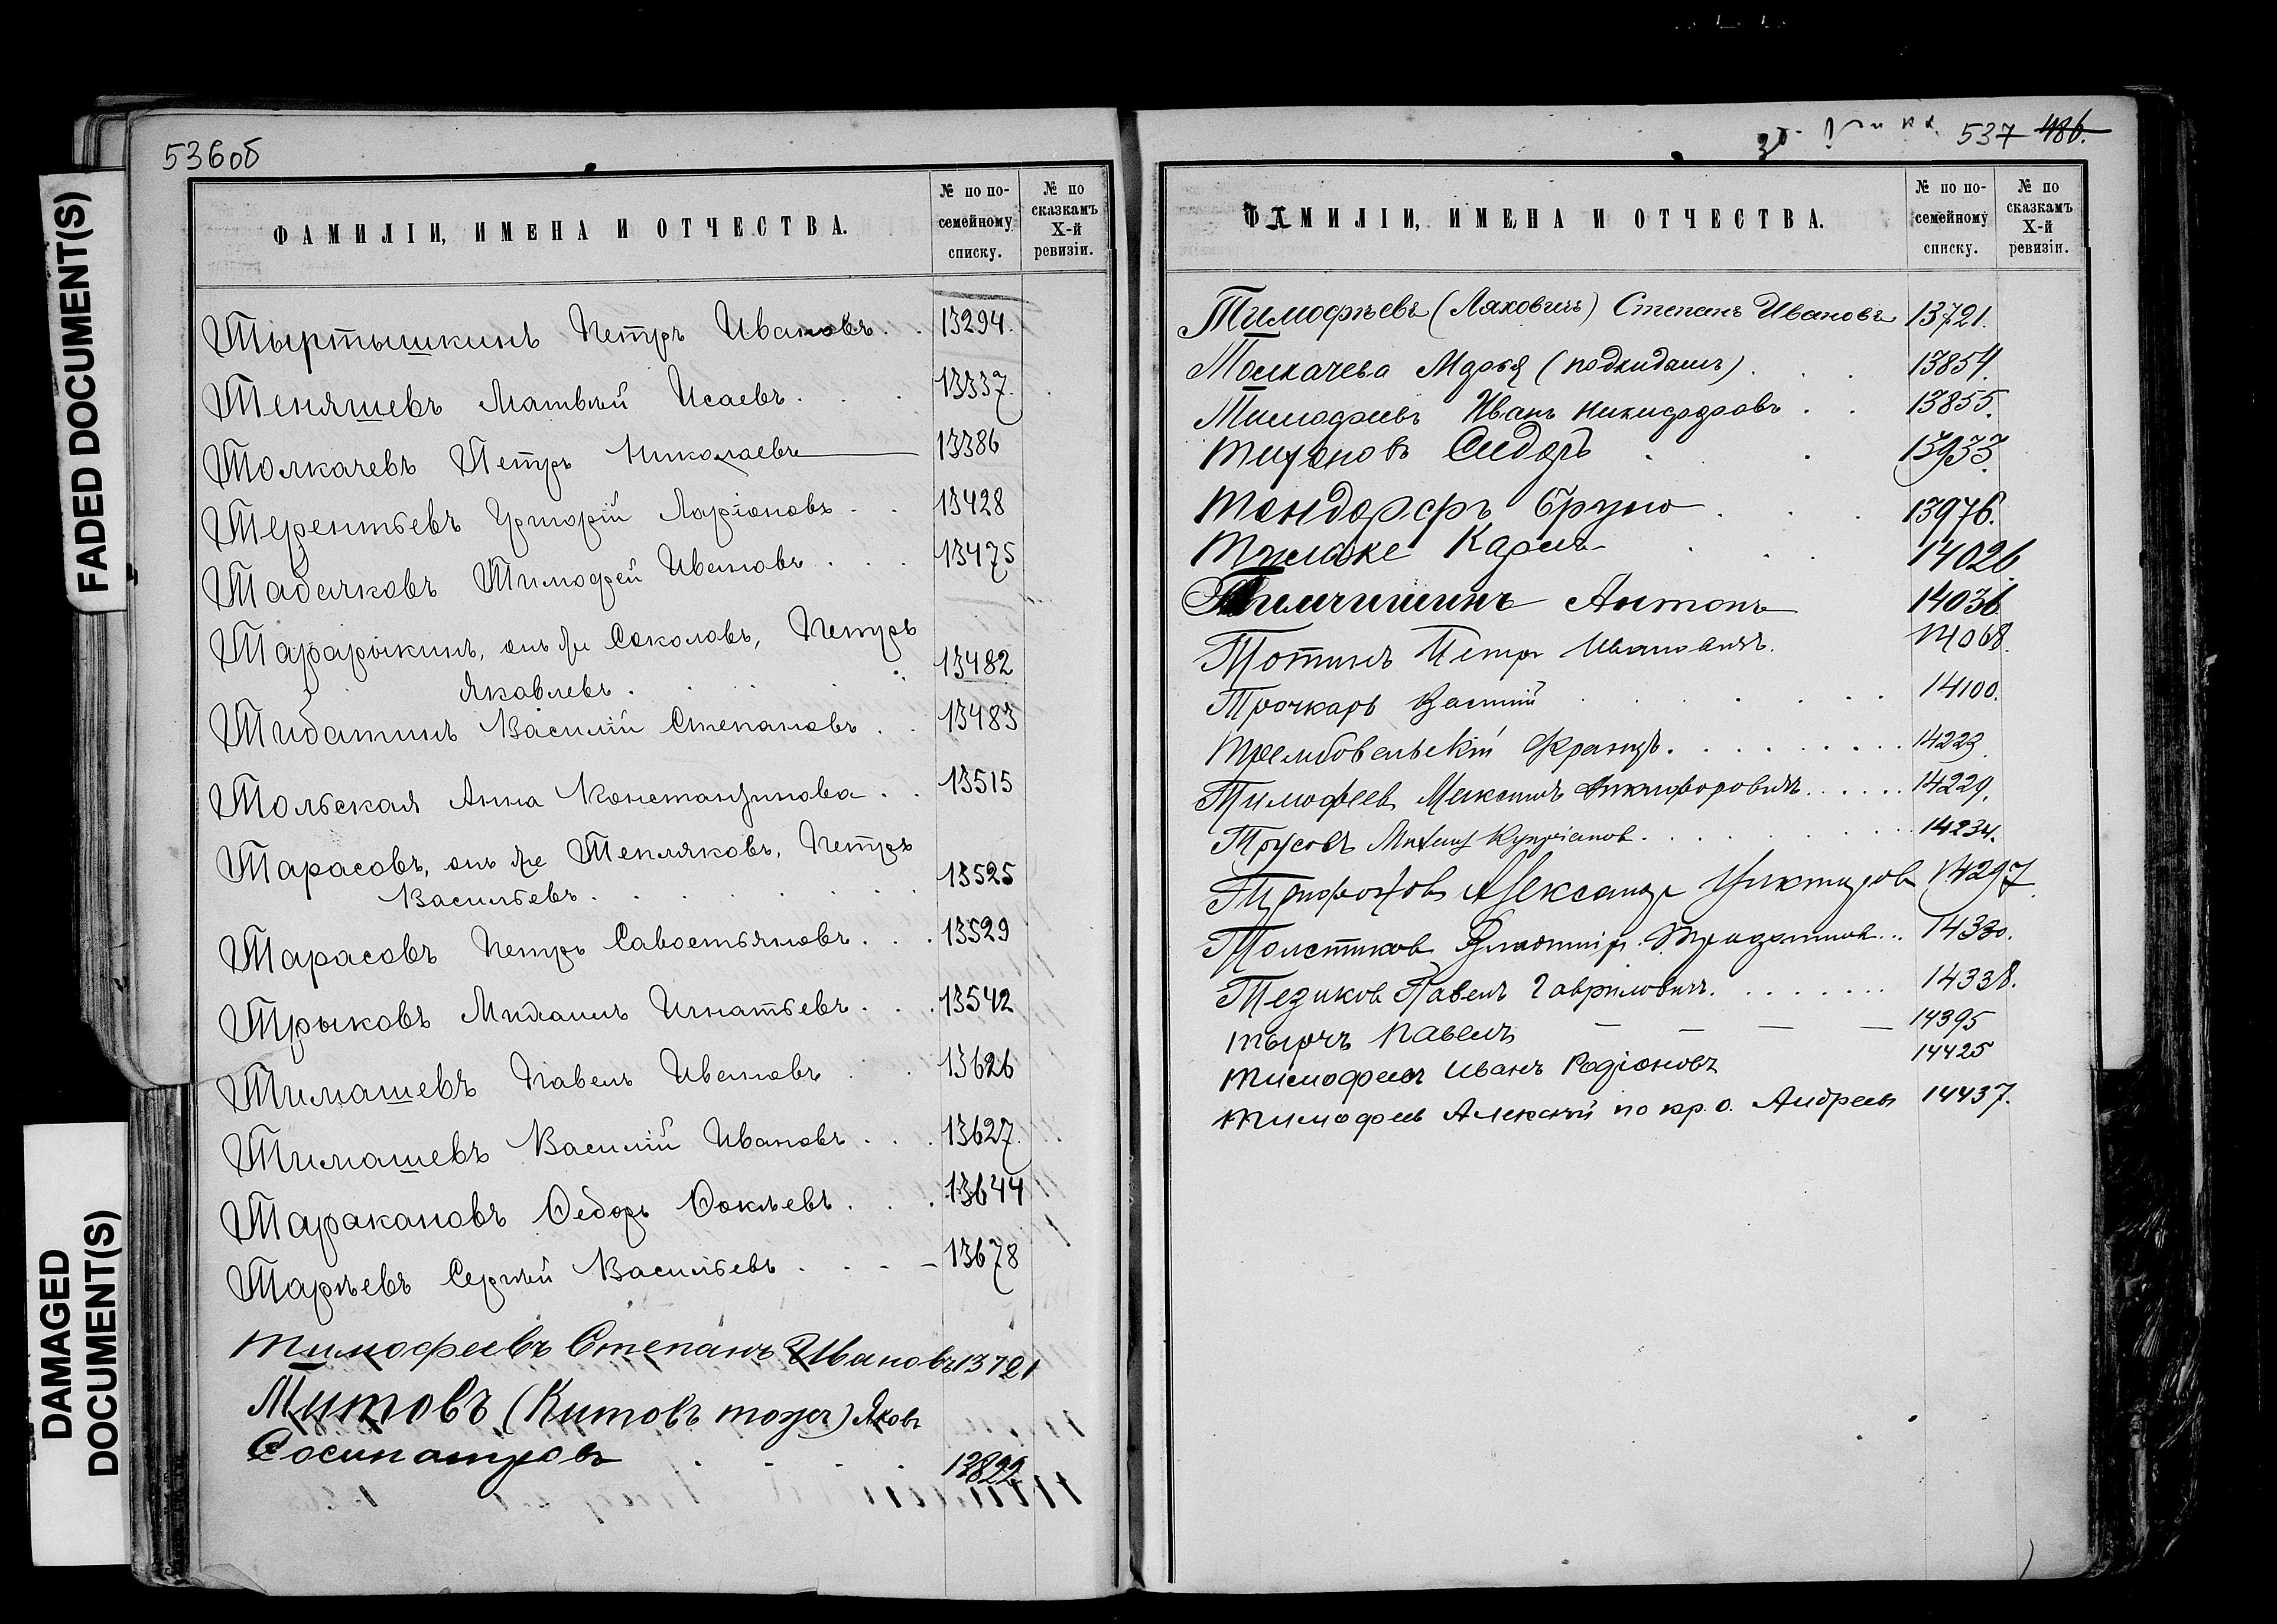 FADED DOCUMENT(S)
DAMAGED
DOCUMENT(S)
536об
ФАМИЛІИ, ИМЕНА И ОТЧЕСТВА.
№ по по-
семейному
списку.
№ по
сказкамъ
X-й
ревизіи.
Тыртышкинъ Петръ Ивановъ. . 13294.
Теняшевъ Матвѣй Исаевъ. . . 13337.
Толкачевъ Петръ Николаевъ 13386
Терентьевъ Григорій Ларіоновъ . . 13428
Табачковъ Тимофей Ивановъ . . . 13475
Тарарыкинъ, онъ же Соколовъ, Петръ
Яковлевъ . . . . 13482
Тидатинъ Василій Степановъ . . 13483
Тольская Анна Константинова . . 13515
Тарасовъ, онъ же Тепляковъ, Петръ
Васильевъ . . . . . . 13525
Тарасовъ Петръ Савостьяновъ . . . 13529
Трыковъ Михаилъ Игнатьевъ . . . 13542
Тимашевъ Павелъ Ивановъ . . 13626
Тимашевъ Василій Ивановъ . . . 13627.
Таракановъ Ѳедоръ Ѳокѣевъ . . . 13644
Тарѣевъ Сергѣй Васильевъ . . . 13678
Тимофеевъ Степанъ Ивановъ 13721
Титовъ (Китовъ тожъ) Яковъ
Сосипатровъ 13822
537 486.
ФАМИЛІИ, ИМЕНА И ОТЧЕСТВА.
№ по по-
семейному
списку.
№ по
сказкамъ
X-й
ревизіи.
Тимофѣевъ (Ляховичъ) Степанъ Ивановъ 13721.
Толкачева Марья (подкидышъ) . . . 13854.
Тимофеевъ Иванъ Никифоровъ . . 13855.
Тихоновъ Сидоръ . . 13933.
Тондорфъ Бруно . . . 13976.
Тумаке Карлъ . . . 14026
Тимчишинъ Антонъ 14036
Тотинъ Петръ Ивановичъ. 14068.
Трочкарь Василій . . . . 14100.
Трембовельскій Францъ . . . . . . . . . 14223
Тимофеевъ Максимъ Никифоровичъ . . . . . . 14229.
Трусовъ Михаилъ Купріанов . . . . . . . 14234.
Александр 14297
Толстиков Владимір . . . 14330.
Тезиков Павелъ Гавриловичъ. . . . . . . . 14338.
Тырчъ Павелъ — — — — 14395
Тимофеевъ Иванъ Родіоновъ 14425
Тимофеевъ Алексѣй по кр. о. Андреевъ 14437.